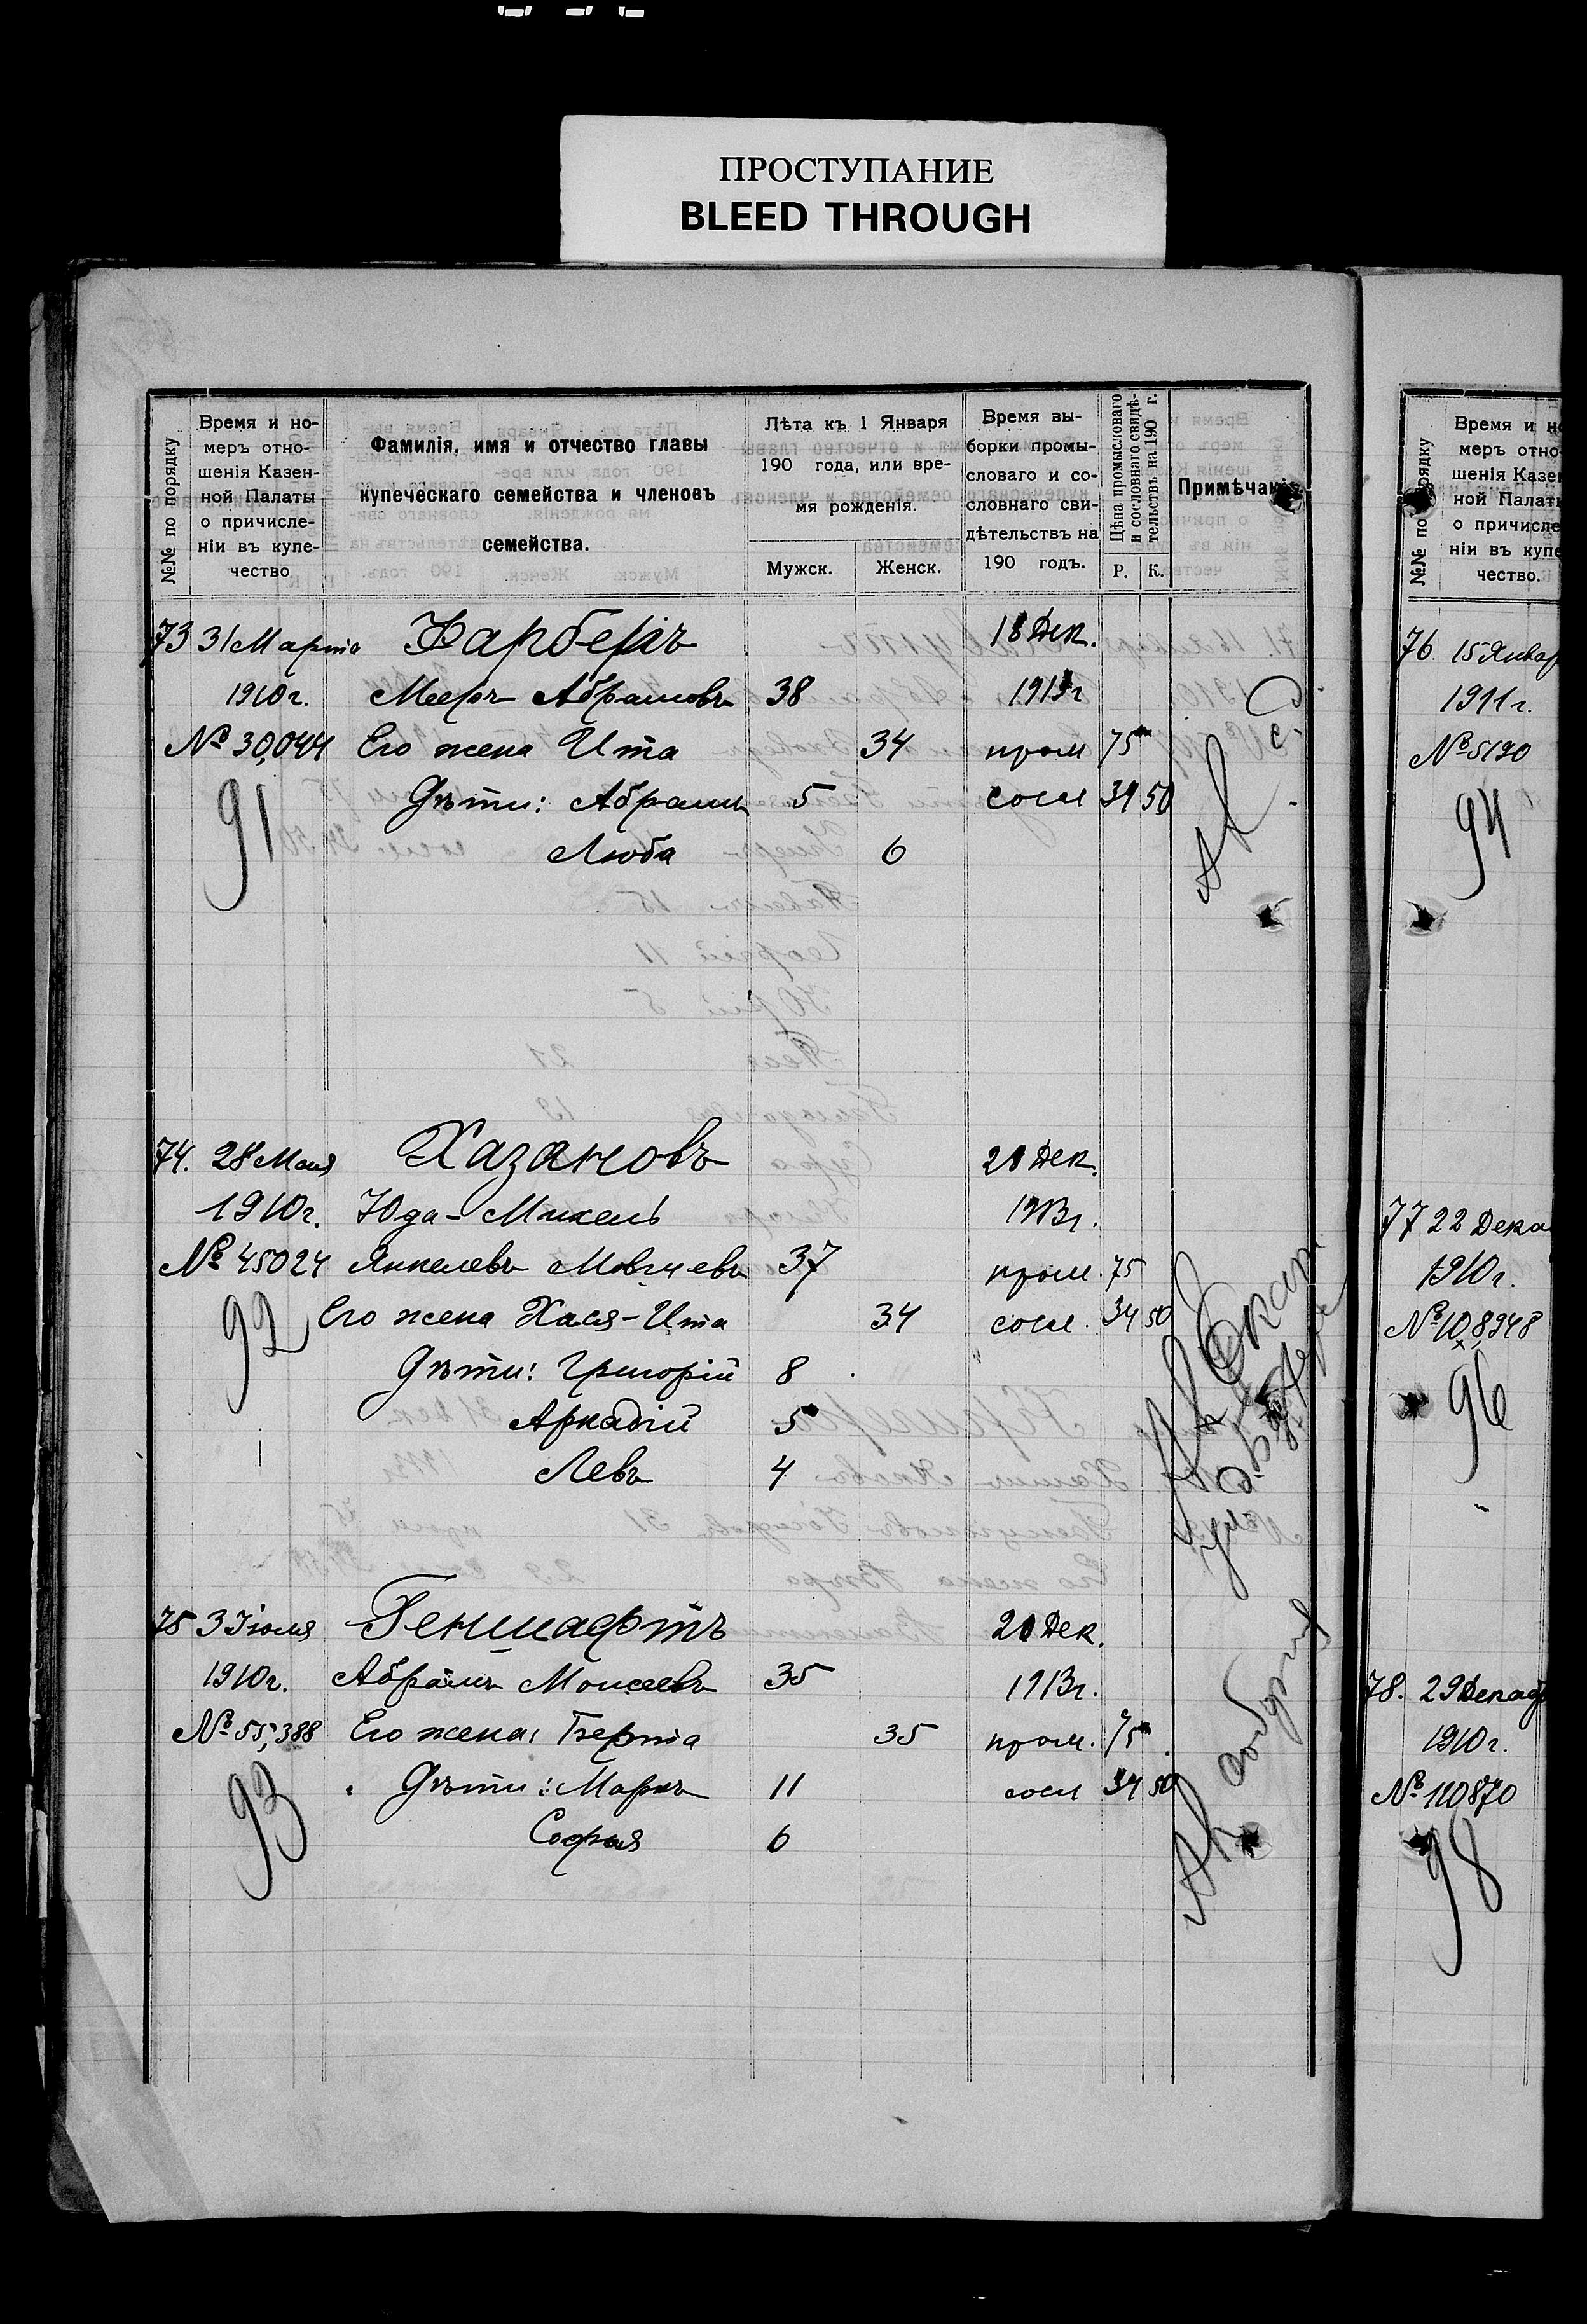 ПРОСТУПАНИЕ
BLEED THROUGH
№№ по порядку
Время и но-
меръ отно-
шенія Казен-
ной Палаты
о причисле-
ніи въ купе-
чество
Фамилія, имя и отчество главы
купеческаго семейства и членовъ
семейства.
Лѣта къ 1 Января
190 года, или вре-
мя рожденія.
Мужск. Женск.
Время вы-
борки промы-
словаго и со-
словнаго сви-
дѣтельствъ на
190 годъ.
Цѣна промысловаго
и сословнаго свидѣ-
тельствъ на 190 г.
Р. К.
Примѣчаніе
73 31 Марта Фарберъ 18 Дек.
1910 г. Мееръ Абрамовъ 38 1913 г
№ 30,044 Его жена Ита 34 пром 75
91 Дѣти: Абрамъ 5 сосл 34 50
Люба 6
74. 28 Мая Хазановъ 20 Дек.
1910 г. Юда-Михель 1913 г.
№ 45024 Янкелевъ Мовшевъ 37 пром. 75
92 Его жена Хася-Ита 34 сосл. 34 50
Дѣти: Григорій 8
Аркадій 5
Левъ 4
75 3 Іюля Геншафтъ 20 Дек.
1910 г. Абрамъ Моисеевъ 35 1913 г.
№ 55,388 Его жена: Берта 35 пром. 75
93 Дѣти: Маркъ 11 сосл 34 50
Софья 6
№№ по порядку
Время и но
меръ отно
шенія Казен
ной Палаты
о причисле
ніи въ купе
чество.
76. 15 Январ
1911 г.
№ 5190
94
77 22 Дека
1910 г.
№ 108948
96
78. 29 Декаб
1910 г.
№ 110870
98